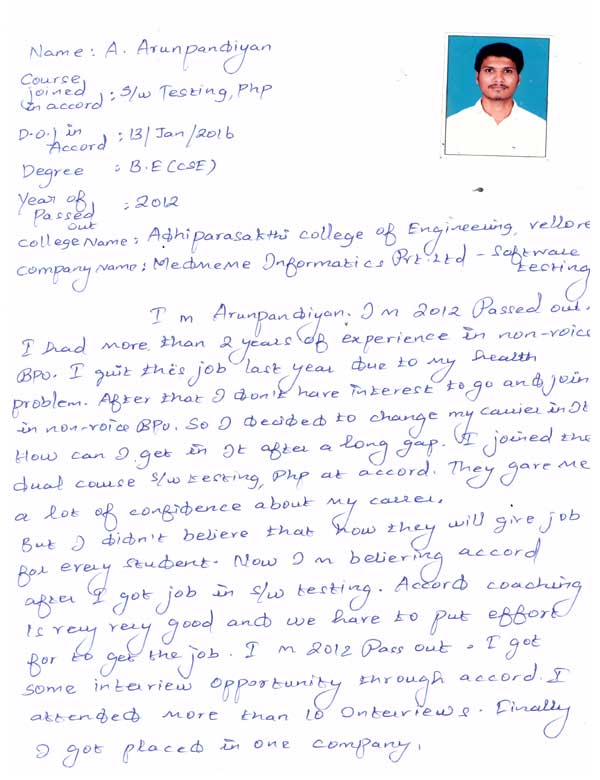 Name: A. Arunpandiyan
Course
joined
in accord : S/w Testing, Php
D.O.J in
Accord : 13/Jan/2016
Degree : B.E (CSE)
Year of
Passed
out : 2012
College Name : Adhiparasakthi college of Engineering, vellore
Company Name : Medmeme Informatics Pvt. Ltd - Software
testing
I m Arunpandiyan. I m 2012 Passed out.
I had more than 2 years of experience in non-voice
BPO. I quit this job last year due to my health
problem. After that I don't have interest to go and join
in non-voice BPO. So I decided to change my carrier in It
How can I get in It after a long gap. I joined the
dual course S/w testing, Php at accord. They gave me
a lot of confidence about my career.
But I didn't believe that how they will give job
for every student. Now I m believing accord
after I got job in S/w testing. Accord coaching
is very very good and we have to put effort
for to get the job. I m 2012 Pass out. I got
some interview opportunity through accord. I
attended more than 10 Interviews. Finally
I got placed in one company.